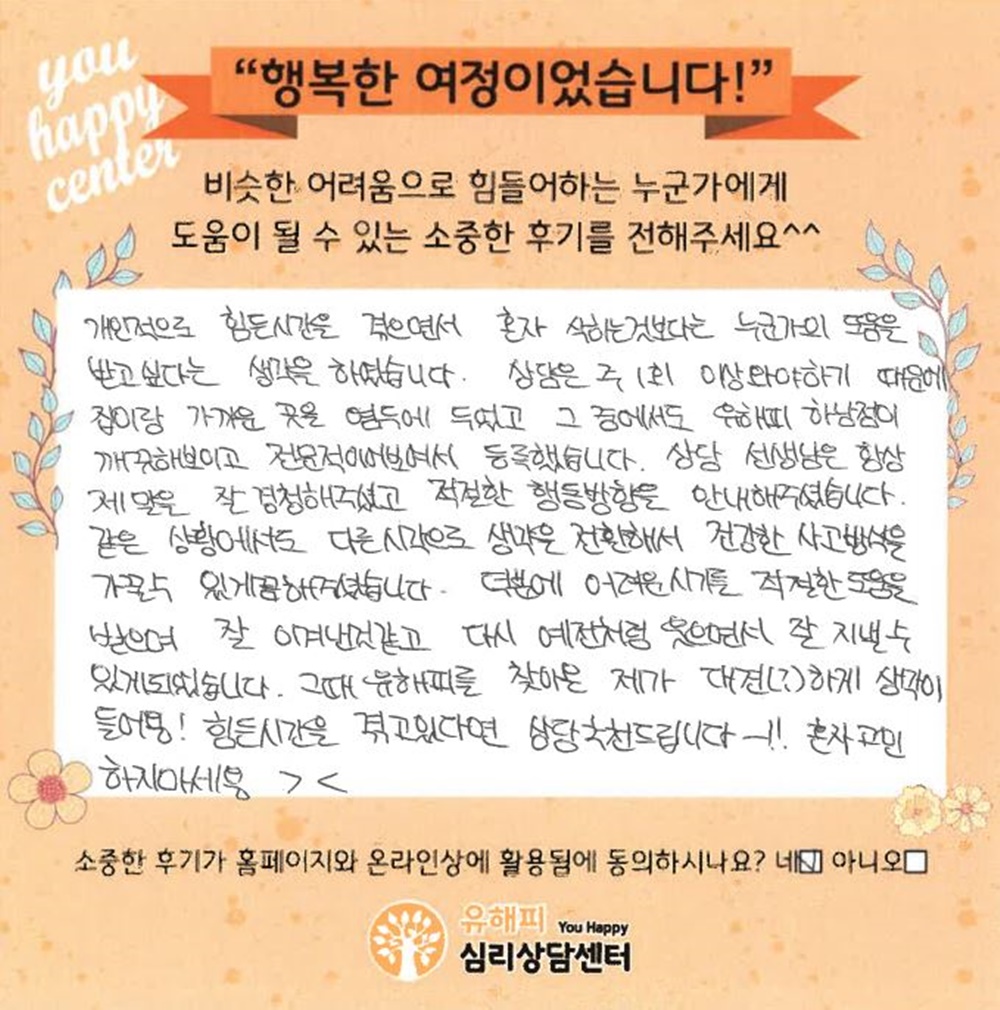 you
happy
center
“행복한 여정이었습니다!”
비슷한 어려움으로 힘들어하는 누군가에게
도움이 될 수 있는 소중한 후기를 전해주세요^^
개인적으로 힘든시간을 겪으면서 혼자 삭히는것보다는 누군가의 도움을
받고싶다는 생각을 하였습니다. 상담은 주 1회 이상와야하기 때문에
집이랑 가까운 곳을 염두에 두었고 그 중에서도 유해피 하남점이
깨끗해보이고 전문적이어보여서 등록했습니다. 상담 선생님은 항상
제 말을 잘 경청해주셨고 적절한 행동방향을 안내해주셨습니다.
같은 상황에서도 다른시각으로 생각을 전환해서 건강한 사고방식을
가꿀수 있게끔해주셨습니다. 덕분에 어려운시기를 적절한도움을
받으며 잘 이겨낸것같고 다시 예전처럼 웃으면서 잘 지낼수
있게되었습니다. 그때 유해피를 찾아온 제가 대견(?)하게 생각이
들어용! 힘든시간을 겪고있다면 상담추천드립니다~!! 혼자고민
하지마세용 > <
소중한 후기가 홈페이지와 온라인상에 활용됨에 동의하시나요? 네 아니오
유해피 You Happy
심리상담센터